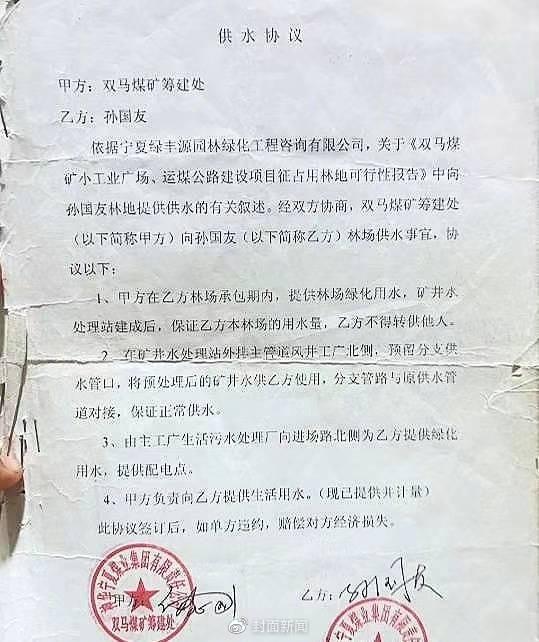 供水协议
甲方：双马煤矿筹建处
乙方：孙国友
依据宁夏绿丰源园林绿化工程咨询有限公司，关于《双马煤
矿小工业广场、运煤公路建设项目征占用林地可行性报告》中向
孙国友林地提供供水的有关叙述。经双方协商，双马煤矿筹建处
（以下简称甲方）向孙国友（以下简称乙方）林场供水事宜，协
议以下：
1、甲方在乙方林场承包期内，提供林场绿化用水，矿井水
处理站建成后，保证乙方本林场的用水量，乙方不得转供他人。
2、在矿井水处理站外排主管道风井工广北侧，预留分支供
水管口，将预处理后的矿井水供乙方使用，分支管路与原供水管
道对接，保证正常供水。
3、由主工广生活污水处理厂向进场路北侧为乙方提供绿化
用水，提供配电点。
4、甲方负责向乙方提供生活用水。（现已提供并计量）
此协议签订后，如单方违约，赔偿对方经济损失。
宁夏煤业集团有限责任公司
甲方：
双马煤矿筹建处
乙方：孙国友
封面新闻